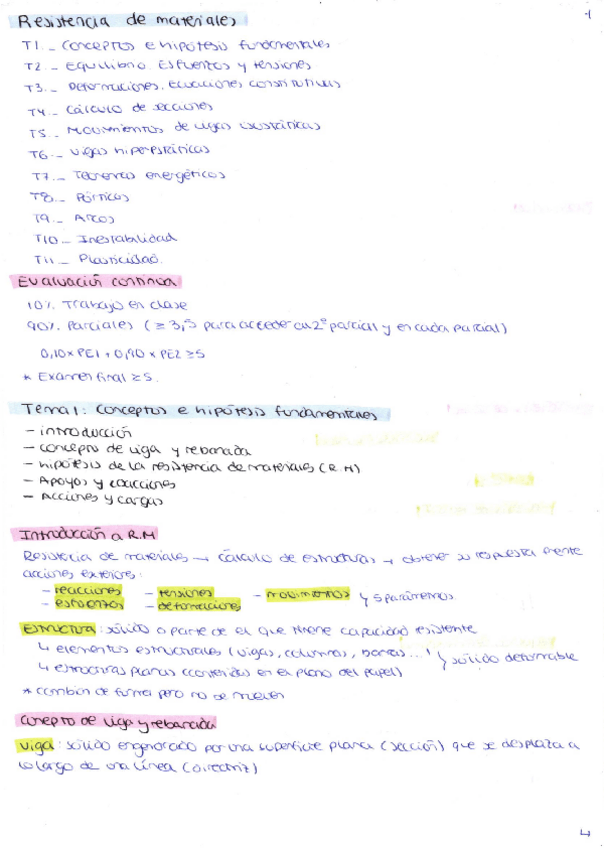 -1
Resistencia de materiales
T1.- Conceptos e hipótesis fundamentales
T2.- Equilibrio. Esfuerzos y tensiones
T3.- Deformaciones. Ecuaciones constitutivas
T4.- Cálculo de secciones
T5.- Movimientos de vigas isostáticas
T6.- Vigas hiperestáticas
T7.- Teoremas energéticos
T8.- Pórticos
T9.- Arcos
T10.- Inestabilidad
T11.- Plasticidad.
Evaluación continua
10% Trabajo en clase
90% Parciales (≥3,5 para acceder al 2º parcial y en cada parcial)
0,10×PE1 + 0,90×PE2 ≥5
* Examen final ≥5.
Tema 1: Conceptos e hipótesis fundamentales
- introducción
- concepto de viga y rebanada
- hipótesis de la resistencia de materiales (R.M)
- Apoyos y coacciones
- Acciones y cargas
Introducción a R.M
Resistencia de materiales → Cálculo de estructuras → obtener su respuesta frente
acciones exteriores:
- reacciones - tensiones - movimientos y 5 parámetros
- esfuerzos - deformaciones
Estructura: sólido o parte de él que tiene capacidad resistente
↳ elementos estructurales (vigas, columnas, barras...) y sólido deformable
↳ estructuras planas (contenidas en el plano del papel)
* cambian de forma pero no se mueven
Concepto de viga y rebanada
Viga: sólido engendrado por una superficie plana (sección) que se desplaza a
lo largo de una línea (directriz)
4